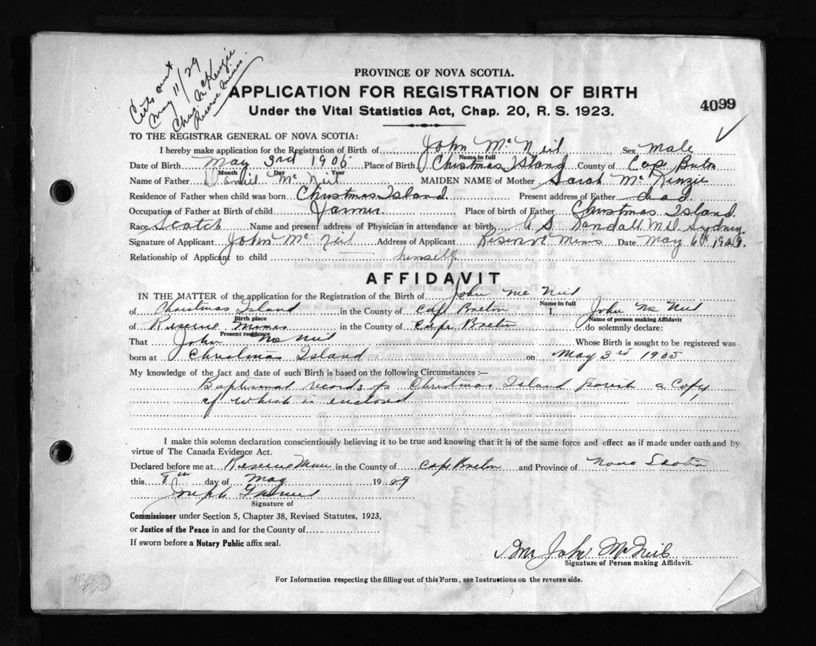 Cert sent
May 11/29
Chas McKenzie
Reserve Mines
PROVINCE OF NOVA SCOTIA.
APPLICATION FOR REGISTRATION OF BIRTH
4099
Under the Vital Statistics Act, Chap. 20, R. S. 1923.
TO THE REGISTRAR GENERAL OF NOVA SCOTIA:
I hereby make application for the Registration of Birth of John McNeil Sex Male
Name in full
Date of Birth May 3rd 1905 Place of Birth Christmas Island County of Cape Breton
Month Day Year
Name of Father Daniel McNeil MAIDEN NAME of Mother Sarah McKinzie
Residence of Father when child was born Christmas Island Present address of Father dead
Occupation of Father at Birth of child Farmer Place of birth of Father Christmas Island.
Race Scotch Name and present address of Physician in attendance at birth A S. Kendall M.D. Sydney
Signature of Applicant John McNeil Address of Applicant Reserve Mines Date May 6th 1929.
Relationship of Applicant to child himself
AFFIDAVIT
IN THE MATTER of the application for the Registration of the Birth of John McNeil
Name in full
of Christmas Island in the County of Cape Breton I, John McNeil
Birth place Name of person making Affidavit
of Reserve Mines in the County of Cape Breton do solemnly declare:
Present residence
That John McNeil Whose Birth is sought to be registered was
born at Christmas Island on May 3rd 1905
My knowledge of the fact and date of such Birth is based on the following Circumstances :—
Baptismal records of Christmas Island parish a Copy
of which is enclosed
I make this solemn declaration conscientiously believing it to be true and knowing that it is of the same force and effect as if made under oath and by
virtue of The Canada Evidence Act.
Declared before me at Reserve Mines in the County of Cape Breton and Province of Nova Scotia
this 8th day of May 1929
Joseph
Signature of
Commissioner under Section 5, Chapter 38, Revised Statutes, 1923,
or Justice of the Peace in and for the County of
If sworn before a Notary Public affix seal.
John McNeil
Signature of Person making Affidavit.
For Information respecting the filling out of this Form, see Instructions on the reverse side.